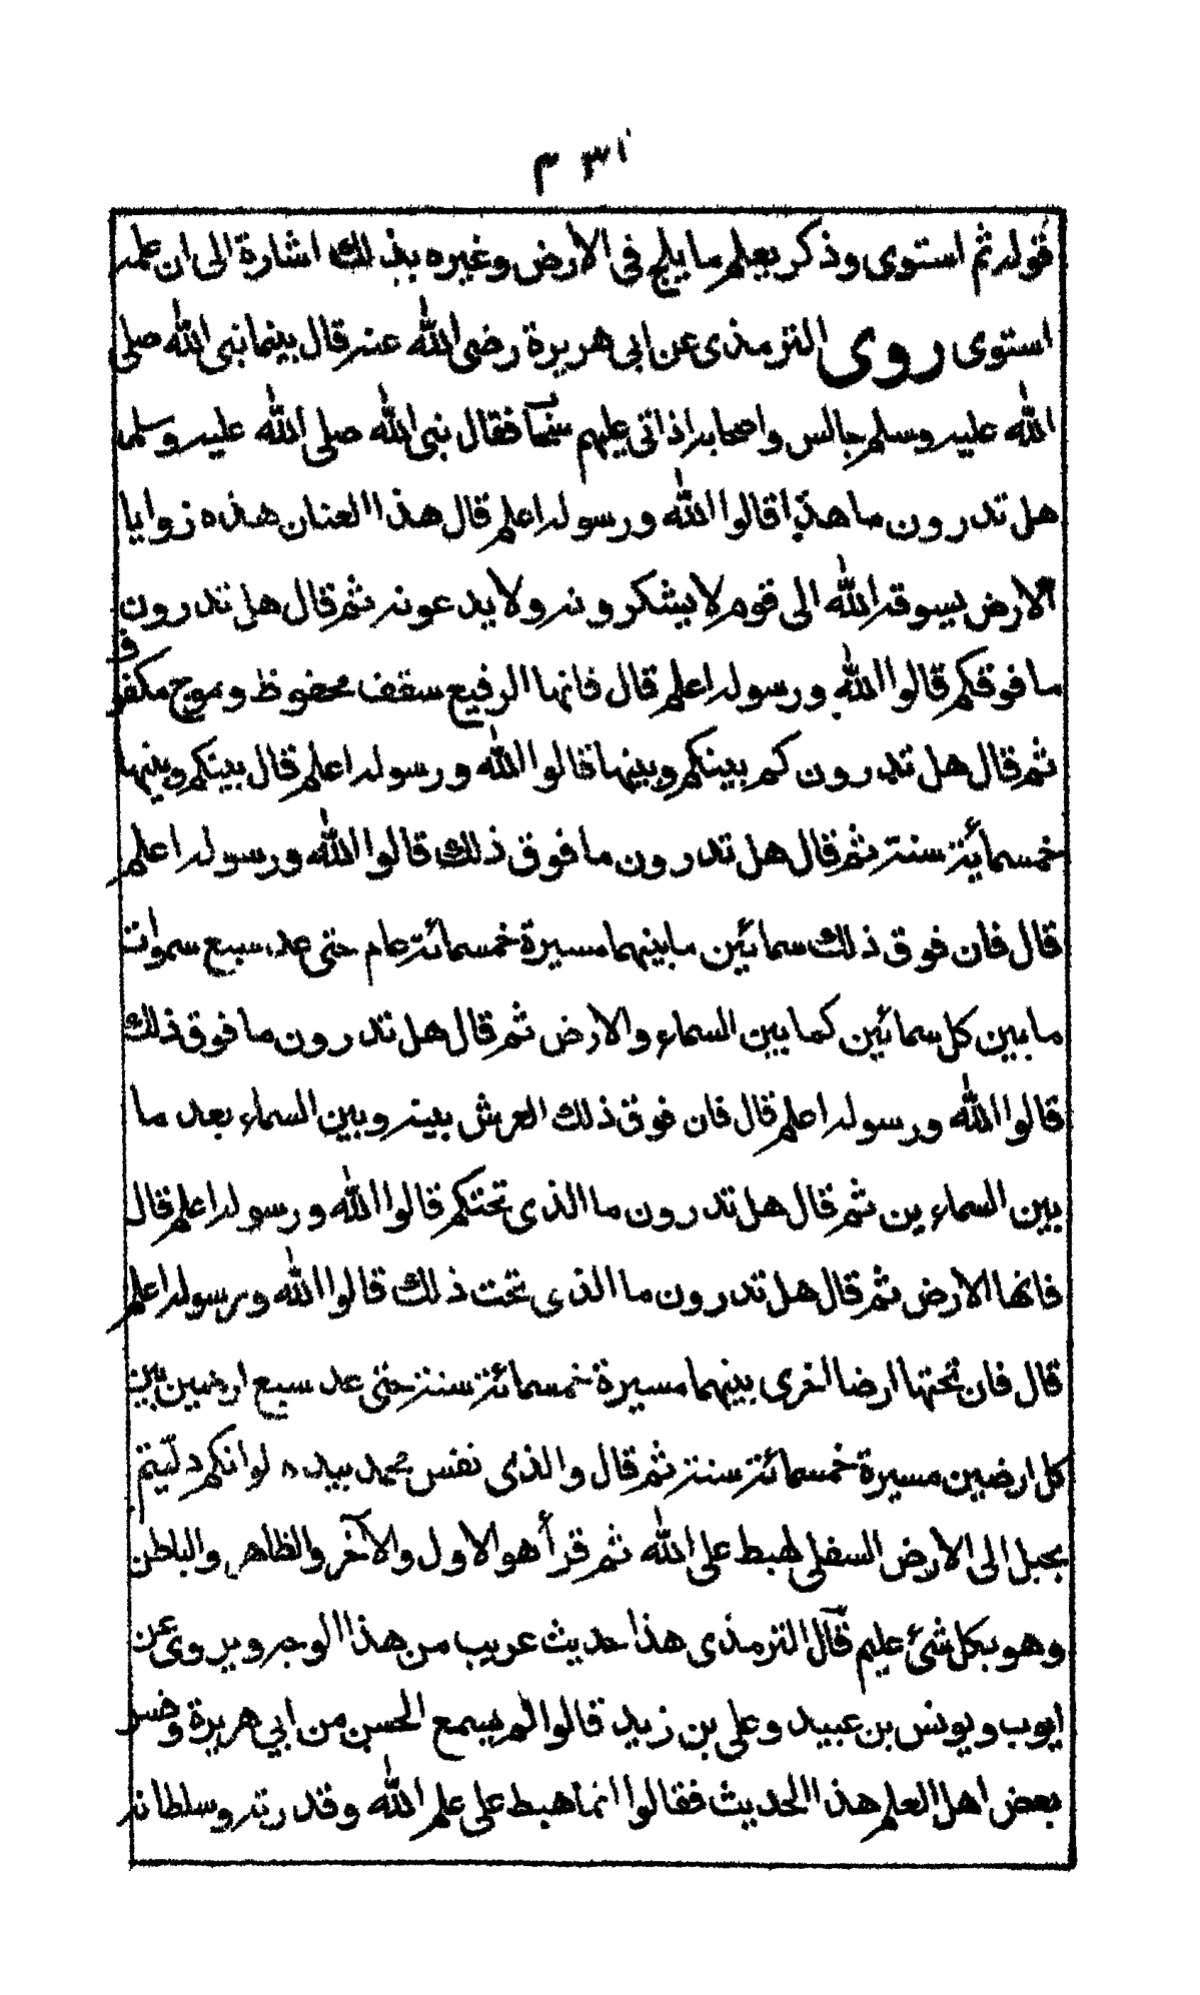 ٣١ ٣
قوله ثم استوى وذكر يعلم ما يلج فى الأرض وغيره بذلك اشارة الى ان علمه
استوى روى الترمذى عن ابى هريرة رضى الله عنه قال بينما نبى الله صلى
الله عليه وسلم جالس واصحابه اذ اتى عليهم سحاب فقال نبى الله صلى الله عليه وسلم
هل تدرون ما هذا قالوا الله ورسوله اعلم قال هذا العنان هذه زوايا
الارض يسوقه الله الى قوم لا يشكرونه ولا يدعونه ثم قال هل تدرون
ما فوقكم قالوا الله ورسوله اعلم قال فانها الرفيع سقف محفوظ وموج مكفوف
ثم قال هل تدرون كم بينكم وبينها قالوا الله ورسوله اعلم قال بينكم وبينها
خمسمائة سنة ثم قال هل تدرون ما فوق ذلك قالوا الله ورسوله اعلم
قال فان فوق ذلك سمائين ما بينهما مسيرة خمسمائة عام حتى عد سبع سموات
ما بين كل سمائين كما بين السماء والارض ثم قال هل تدرون ما فوق ذلك
قالوا الله ورسوله اعلم قال فان فوق ذلك العرش بينه وبين السماء بعد ما
بين السماءين ثم قال هل تدرون ما الذى تحتكم قالوا الله ورسوله اعلم قال
فانها الارض ثم قال هل تدرون ما الذى تحت ذلك قالوا الله ورسوله اعلم
قال فان تحتها ارضا اخرى بينهما مسيرة خمسمائة سنة حتى عد سبع ارضين بين
كل ارضين مسيرة خمسمائة سنة ثم قال والذى نفس محمد بيده لو انكم دليتم
بحبل الى الارض السفلى لهبط على الله ثم قرأ هو الاول والآخر والظاهر والباطن
وهو بكل شئ عليم قال الترمذى هذا حديث غريب من هذا الوجه ويروى عن
ايوب ويونس بن عبيد وعلى بن زيد قالوا لم يسمع الحسن من ابي هريرة وفسر
بعض اهل العلم هذا الحديث فقالوا انما هبط على علم الله وقدرته وسلطانه